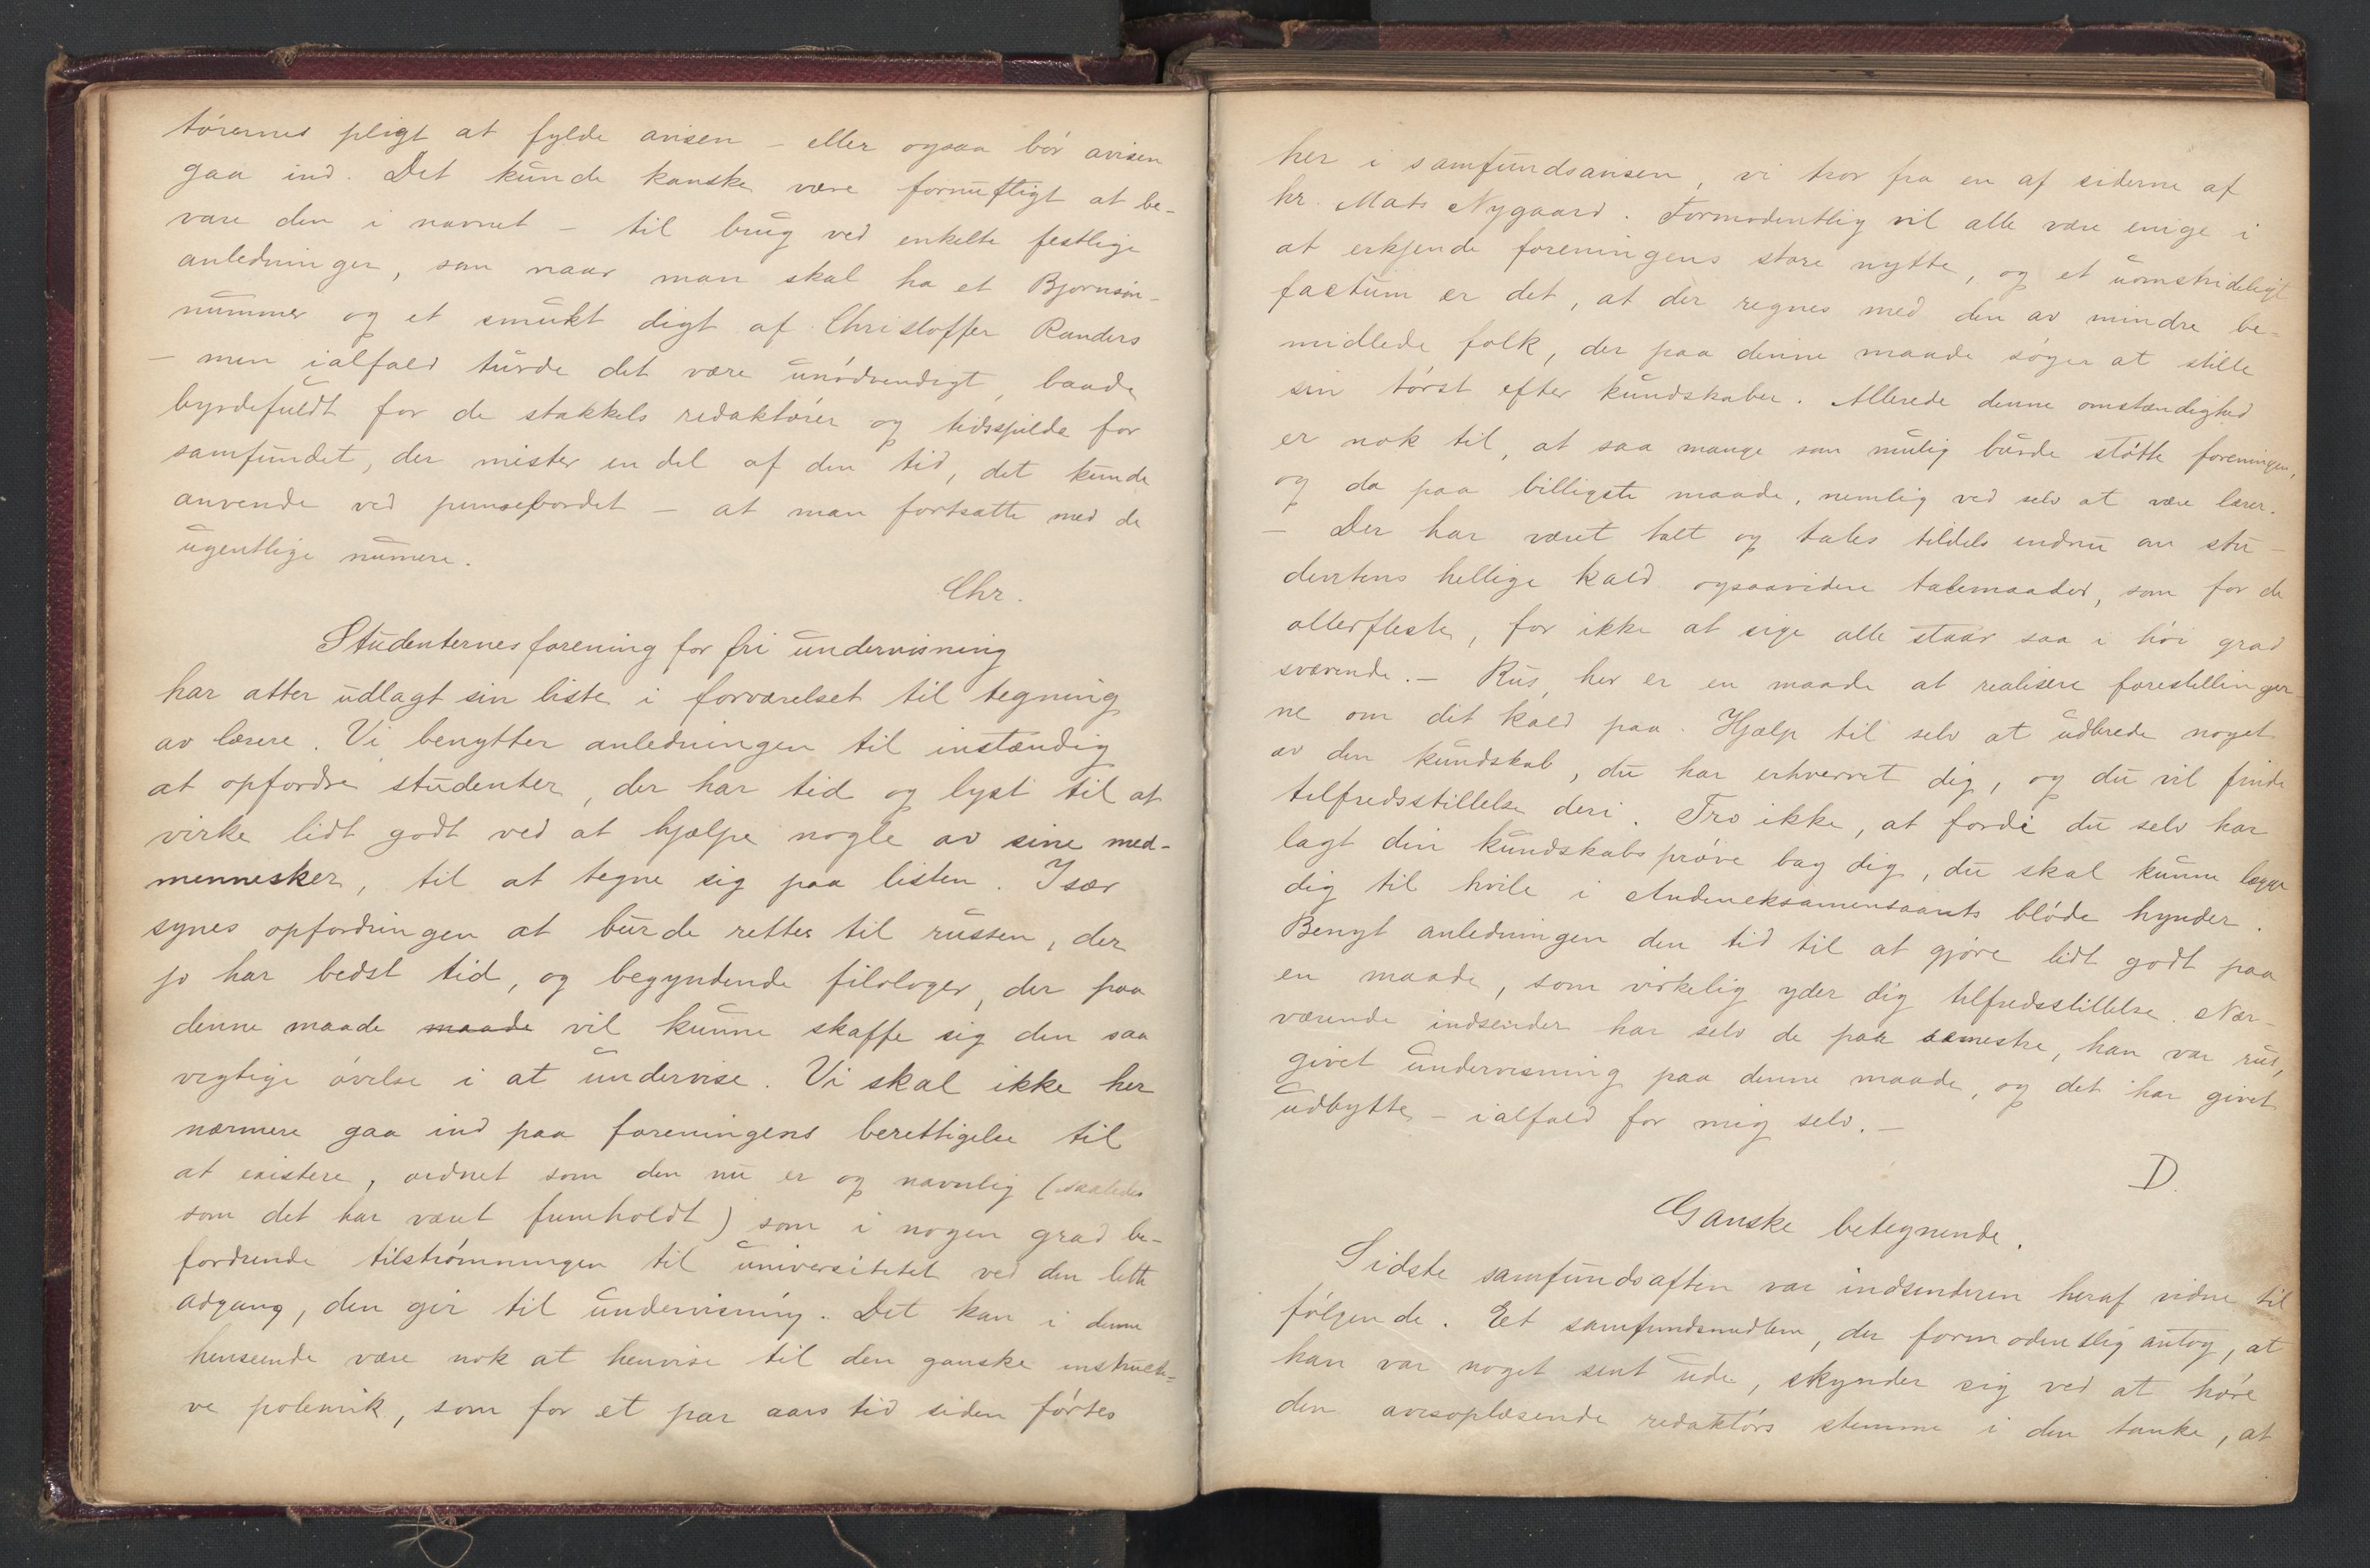 tørernes pligt at fylde avisen – eller ogsaa bør avisen
gaa ind. Det kunde kanske være fornuftigt at be-
vare den i navnet – til brug ved enkelte festlige
anledninger, som naar man skal ha et Bjørnson-
nummer og et smukt digt af Christoffer Randers
– men ialfald turde det være unødvendigt, baade
byrdefuldt for de stakkels redaktører og tidsspilde for
samfundet, der mister en del af den tid, det kunde
anvende ved punsebordet – at man fortsatte med de
ugentlige numere.
Chr.
Studenternes forening for fri undervisning
har atter udlagt sin liste i forværelset til tegning
av lærere. Vi benytter anledningen til instændig
at opfordre studenter, der har tid og lyst til at
virke lidt godt ved at hjælpe nogle av sine med-
mennesker, til at tegne sig paa listen. Især
synes opfordringen at burde rettes til russen, der
jo har bedst tid, og begyndende filologer, der paa
denne maade maade vil kunne skaffe sig den saa
vigtige øvelse i at undervise. Vi skal ikke her
nærmere gaa ind paa foreningens berettigelse til
at existere, ordnet som den nu er og navnlig (saaledes
som det har været fremholdt) som i nogen grad be-
fordrende tilstrømningen til universitetet ved den lette
adgang, den gir til undervisning. Det kan i denne
henseende være nok at henvise til den ganske instructi-
ve polemik, som for et par aars tid siden førtes
her i samfundsavisen, vi tror fra en af siderne af
hr. Mats Nygaard. Formodentlig vil alle være enige i
at erkjende foreningens store nytte, og et uomstrideligt
factum er det, at der regnes med den av mindre be-
midlede folk, der paa denne maade søger at stille
sin tørst efter kundskaber. Allerede denne omstændighed
er nok til, at saa mange som mulig burde støtte foreningen,
og da paa billigste maade, nemlig ved selv at være lærer.
– Der har været talt og tales tildels endnu om stu-
dentens hellige kald ogsaavidere talemaader, som for de
allerfleste, for ikke at sige alle staar saa i høi grad
svævende. – Rus, her er en maade at realisere forestillinger-
ne om dit kald paa. Hjælp til selv at udbrede noget
av den kundskab, du har erhvervet dig, og du vil finde
tilfredsstillelse deri. Tro ikke, at fordi du selv har
lagt din kundskabsprøve bag dig, du skal kunne lægge
dig til hvile i Andeneksamensaarets bløde hynder.
Benyt anledningen den tid til at gjøre lidt godt paa
en maade, som virkelig yder dig tilfredsstillelse. Nær-
værende indsender har selv de par semestre, han var rus,
givet undervisning paa denne maade, og det har givet
udbytte – ialfald for mig selv. –
D.
Ganske betegnende.
Sidste samfundsaften var indsenderen heraf vidne til
følgende. Et samfundsmedlem, der formodentlig antog, at
han var noget sent ude, skynder sig ved at høre
den avisoplæsende redaktørs stemme i den tanke, at